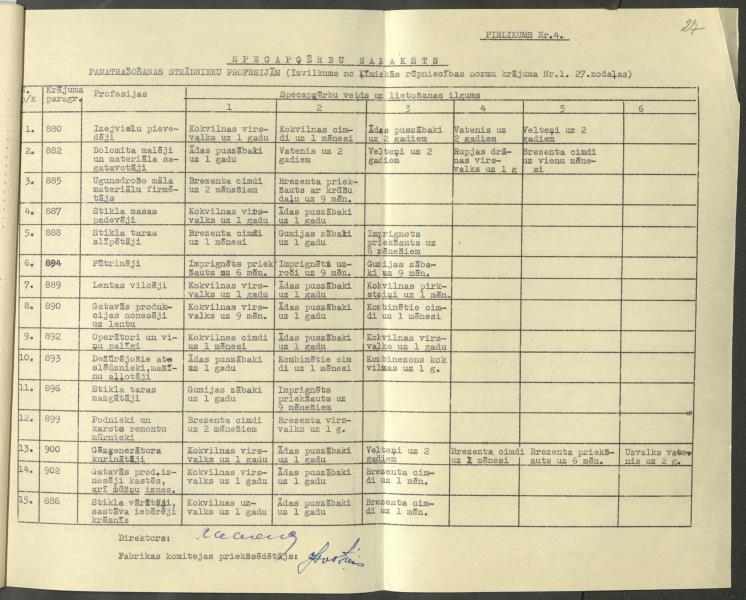 27
PIELIKUMS Nr.4.
SPECAPĢĒRBU SARAKSTS
PAMATRAŽOŠANAS STRĀDNIEKU PROFESIJĀM (Izvilkums no Ķīmiskās rūpniecības normu krājuma Nr.1. 27.nodaļas)
p/k Krājuma paragr. Profesijas Specapģērbu veids un lietošanas ilgums
1 2 3 4 5 6
1. 880 Izejvielu pieve- Kokvilnas virs- Kokvilnas cim- Ādas puszābaki Vatenis uz Velteņi uz 2
dēji valks uz 1 gadu di uz 1 mēnesi uz 2 gadiem 2 gadiem gadiem
2. 882 Dolomita malēji Ādas puszābaki Vatenis uz 2 Velteņi uz 2 Rupjas drā- Brezenta cimdi
un materiāla sa- uz 1 gadu gadiem gadiem nas virs- uz vienu mēne-
gatavotāji valks uz 1 g si
3. 885 Ugunsdrošo māla Brezenta cimdi Brezenta priek-
materiālu firmē- uz 2 mēnešiem šauts ar krūšu
tājs daļu uz 9 mēn.
4. 887 Stikla masas Kokvilnas virs- Ādas puszābaki
padevēji valks uz 1 gadu uz 1 gadu
5. 888 Stikla taras Brezenta cimdi Gumijas zābaki Imprignets
slīpētāji uz 1 mēnesi uz 1 gadu priekšauts uz
6 mēnešiem
6. 894 Pūtrinēji Imprignēts priek Imprignēti uz- Gumijas zāba-
šauts uz 6 mēn. roči uz 9 mēn. ki uz 9 mēn.
7. 889 Lentas vilcēji Kokvilnas virs- Ādas puszābaki Kokvilnas pirk-
valks uz 1 gadu uz 1 gadu staiņi uz 1 mēn.
8. 890 Gatavās produk- Kokvilnas virs- Ādas puszābaki Kombinētie cim-
cijas nonesēji valks uz 9 mēn. uz 1 gadu di uz 1 mēnesi
uz lentu
9. 892 Operātori un vi- Kokvilnas cimdi Ādas puszābaki Kokvilnas virs-
ņu palīgi uz 1 mēnesi uz 1 gadu valks uz 1 gadu
10. 893 Dežūrējošie ats Ādas puszābaki Kombinētie cim Kombinezons kok
slēdznieki,mašī- uz 1 gadu di uz 1 mēnesi vilnas uz 1 g.
nu eļļotāji
11. 896 Stikla taras Gumijas zābaki Imprignēts
mazgātāji uz 1 gadu priekšauts uz
9 mēnešiem
12. 899 Podnieki un Brezenta cimdi Brezenta virs-
karsto remontu uz 2 mēnešiem valks uz 1 g.
mūrnieki
13. 900 Gāzģenerātora Kokvilnas virs- Ādas puszābaki Velteņi uz 2 Brezenta cimdi Brezenta priekš- Uzvalks vate-
kurinātāji valks uz 1 gadu uz 1 gadu gadiem uz 1 mēnesi auts uz 6 mēn. nis uz 2 g.
14. 902 Gatavās prod.iz- Kokvilnas virs- Ādas puszābaki Brezenta cim-
nesēji kastēs, valks uz 1 gadu uz 1 gadu di uz 1 mēn.
arī mūžņu iznes.
15. 886 Stikla vārītāji, Kokvilnas uz- Ādas puszābaki Brezenta cim-
sastāva iebērēji valks uz 1 gadu uz 1 gadu di uz 1 mēn.
krāsnīs
Direktors:
Fabrikas komitejas priekšsēdētājs: